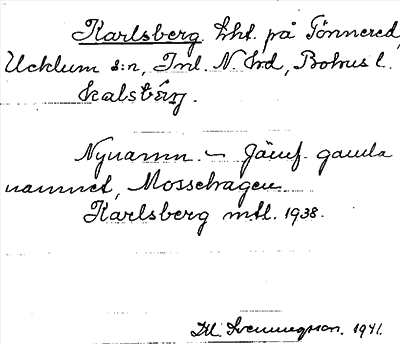 Karlsberg. lht. på Tönnered,
Ucklum s:n, Inl. N. Hd, Bohus l.
kalsbärj.
Nynamn. – Jämf. gamla
namnet, Mossehagen
Karlsberg mtl. 1938.
D. Svenningson. 1941.